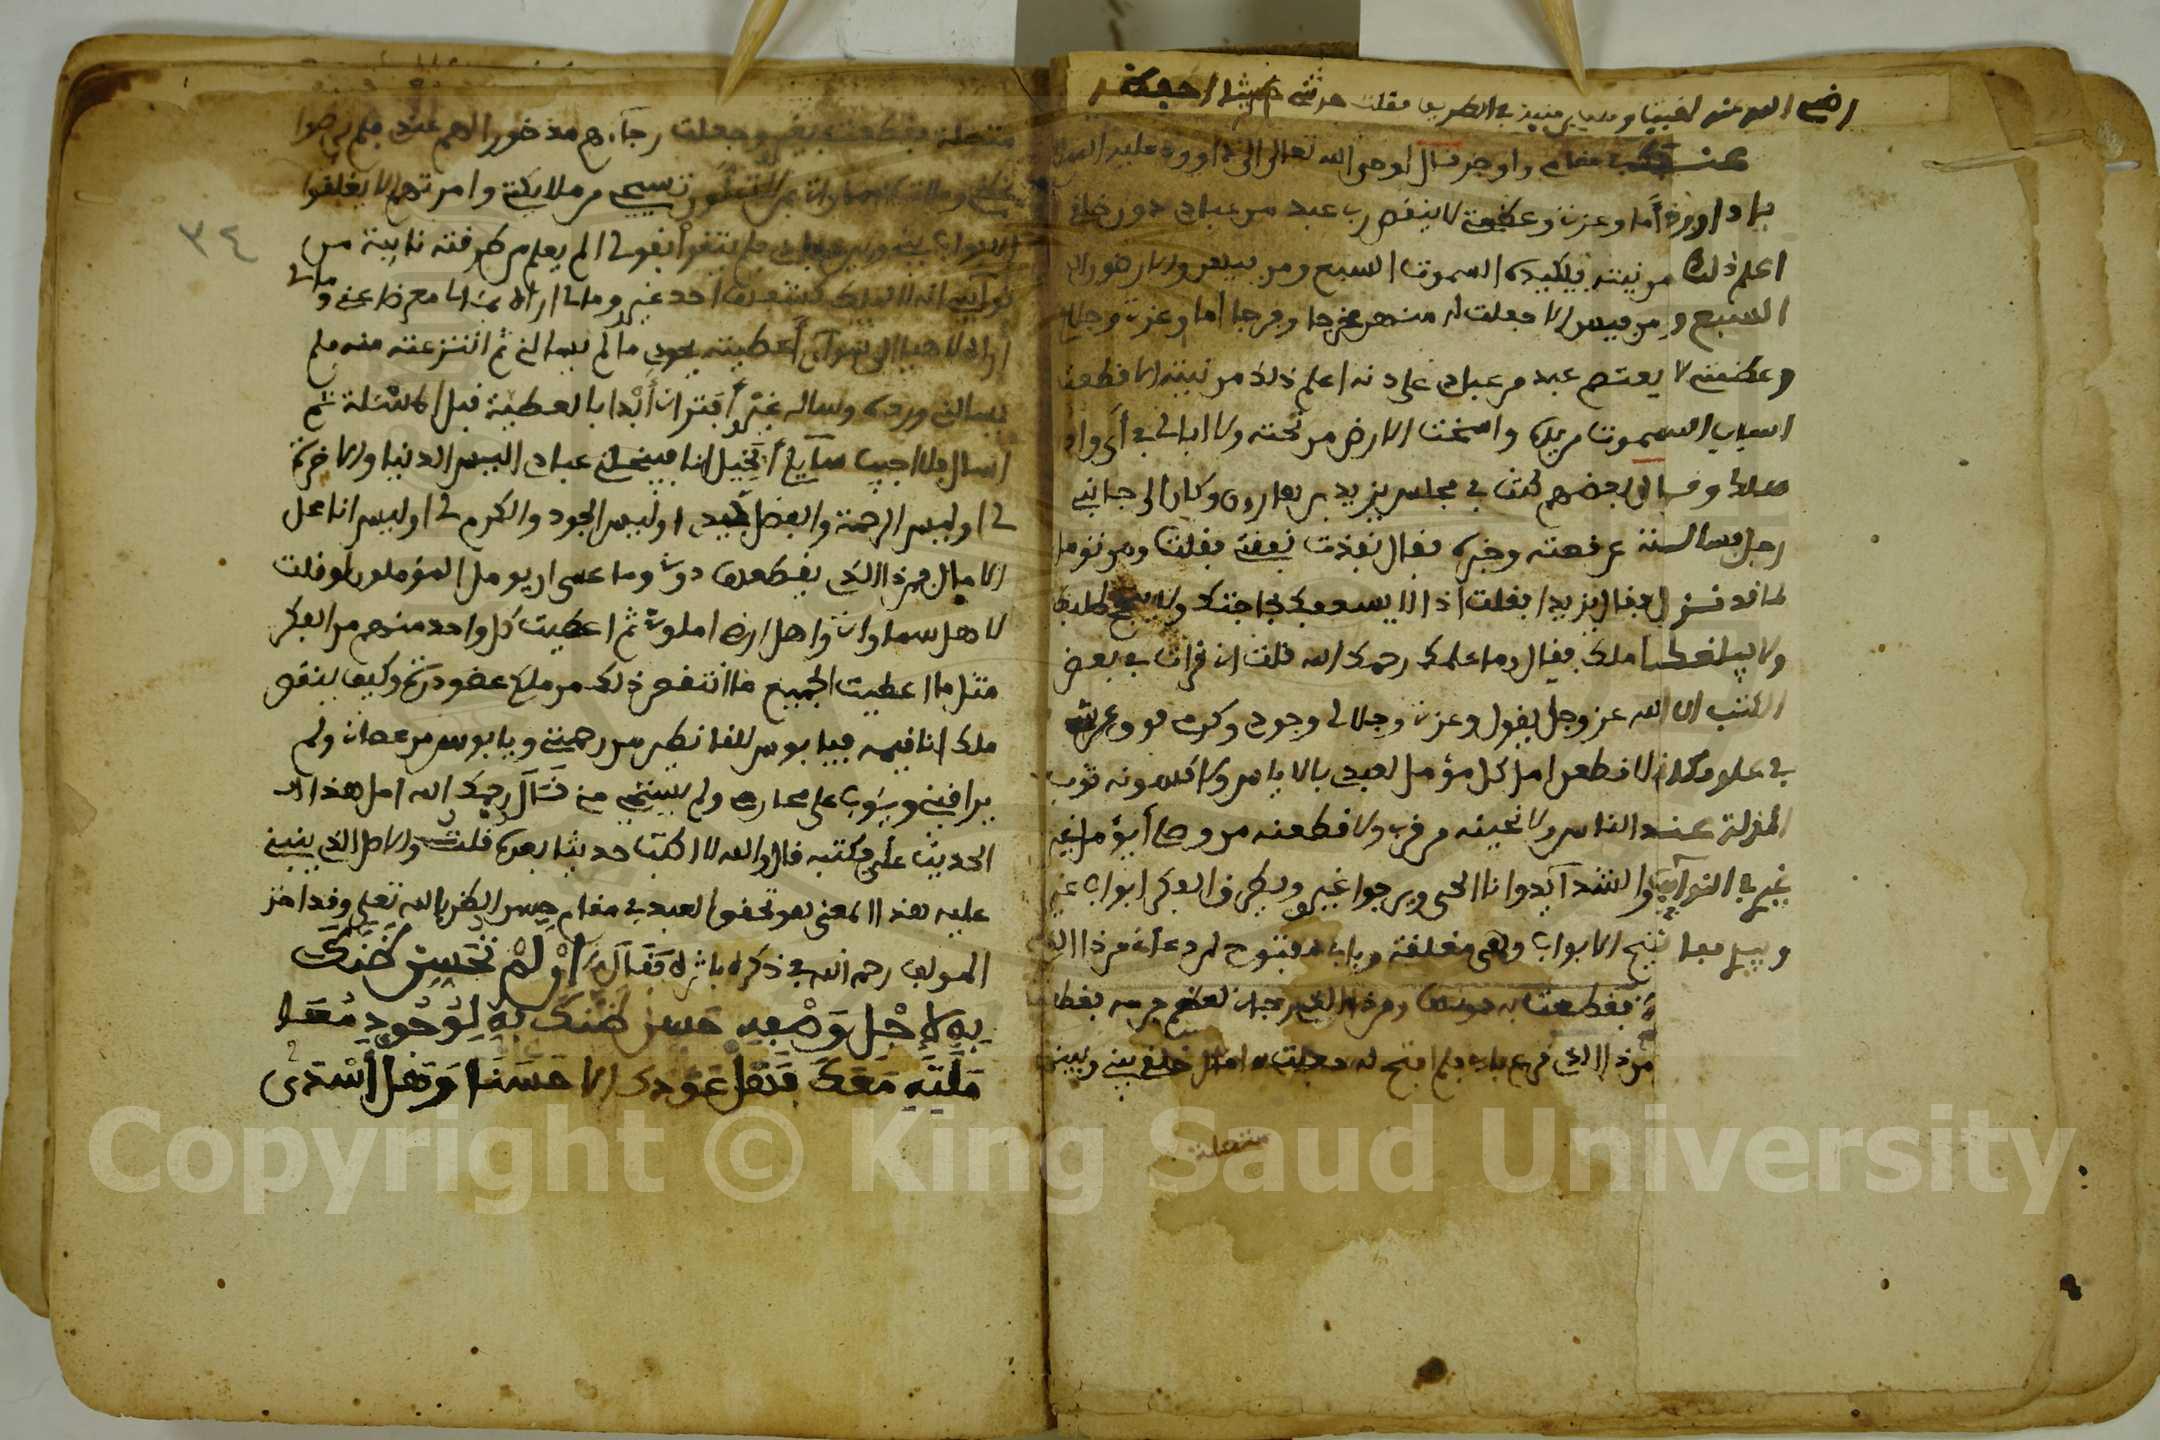 رضي الله عنه لقيني وهب بن منبه في الطريق فقلت حدثني حديثا احفظه
عنك في مقامي واوجز قال اوحى الله تعالى الى داوود عليه السلام
يا داوود أما وعزتي وعظمتي لا ينتصر بي عبد من عبادي دون خلقي
اعلم ذلك من نيته فتكيده السموات السبع ومن فيهن والارضون
السبع ومن فيهن الا جعلت له منهن مخرجا وفرجا اما وعزتي وجلالي
وعظمتي لا يعتصم عبد من عبادي على دونه اعلم ذلك من نيته الا قطعت
اسباب السموات من يده واسخت الارض من تحته ولا ابالي في أي واد
هلك وقال بعضهم كنت في مجلس يزيد بن هارون وكان الى جانبي
رجل فسالته عن قصته وخبره فقال نفذت نفقتي فقلت ومن تؤمل
لما قد نزل فقال يزيد فقلت اذا لا يسعفك بحاجتك ولا ينجح طلبك
ولا يبلغك املك فقال وما علمك رحمك الله قلت اني قرات في بعض
الكتب ان الله عز وجل يقول وعزتي وجلالي وجودي وكرمي فوق عرشي
في علو مكاني لاقطعن امل كل مؤمل لعبدي بالاياس ولاكسونه ثوب
المذلة عند الناس ولانحينه من قربي ولاقطعنه من وصلي أيؤمل غيري
في النوائب والشدآئد وانا الحي ويرجو غيري ويطرق بالفكر ابواب غيري
وبيدي مفاتيح الابواب وهي مغلقة وبابي مفتوح لمن دعاني من ذا الذي
فقطعت به دونها ومن ذا الذي رجاني لعظيم جرمه فقطعت
من ذا الذي قرع بابي فلم افتح له جعلت امال خلقي بيني وبينهم
متصلة
متصلة فقطعت بغيري وجعلت رجآءهم مذخورا لهم عندي فلم يرضوا
تسبيحي من ملايكتي وامرتهم الا يغلقوا
الابواب بيني وبين عبادي فلم يثقوا بقولي الم يعلم من طرقته نايبة من
نوآئبي انه لا يملك كشفها احد غيري ومالي اراه بـامله معرضا عني ومالي
أراه لاهيا الى سوآئي أعطيته بجودي ما لم يسالني ثم انتزعته منه فلم
يسالني ورده وسال غيري أفتراني أبدا بالعطية قبل المسئلة ثم
اسال فلا اجيب سآيلي أبخيل انا فيبخلني عبادي اليس الدنيا والاخرة
لي اوليس الرحمة والفضل بيدي اوليس الجود والكرم لي اوليس انا محل
الامال فمن ذا الذي يقطعها دوني وما عسى ان يومل المؤملون لو قلت
لاهل سماواتي واهل ارضي املوني ثم اعطيت كل واحد منهم من الفكر
مثل ما اعطيت الجميع ما انتقص ذلك من ملكي عضو ذرة وكيف ينقص
ملك انا قيمه فيا بوس للقانطين من رحمتي ويا بوس من عصاني ولم
يراقبني ويثوب على محارمي ولم يستحي مني قال رحمك الله امل هذا
الحديث علي فكتبه قال والله لا اكتب حديثا بعده قلت والاصل الذي ينبني
عليه هذا المعنى هو تحقق العبد في مقام حسن الظن بالله تعلى وقد اخذ
المولف رحمه الله في ذكره باثره فقال اِنْ لَمْ تُحَسِّنْ ظَنَّكَ
بِهِ لِاَجْلِ وَصْفِهِ حَسِّنْ ظَنَّكَ بِهِ لِوُجُودِ مُعَا
مَلَتِهِ مَعَكَ فَهَلْ عَوَّدَكَ الا حَسَنا وَهَل أَسْدَى